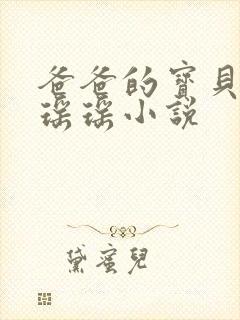 爸爸的寶貝
瑶瑶小説
黛蜜兒